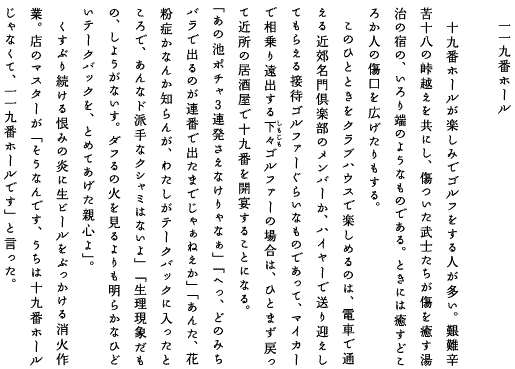 一一九番ホール
十九番ホールが楽しみでゴルフをする人が多い。艱難辛
苦十八の峠越えを共にし、傷ついた武士たちが傷を癒す湯
治の宿の、いろり端のようなものである。ときには癒すどこ
ろか人の傷口を広げたりもする。
このひとときをクラブハウスで楽しめるのは、電車で通
える近郊名門倶楽部のメンバーか、ハイヤーで送り迎えし
てもらえる接待ゴルファーぐらいなものであって、マイカー
で相乗り遠出する下々ゴルファーの場合は、ひとまず戻っ
て近所の居酒屋で十九番を開宴することになる。
「あの池ポチャ3連発さえなけりゃなぁ」「へっ、どのみち
バラで出るのが連番で出たまでじゃぁねえか」「あんた、花
粉症かなんか知らんが、わたしがテークバックに入ったと
ころで、あんなド派手なクシャミはないよ」「生理現象だも
の、しょうがないす。ダフるの火を見るよりも明らかなひど
いテークバックを、とめてあげた親心よ」。
くすぶり続ける恨みの炎に生ビールをぶっかける消火作
業。店のマスターが「そうなんです、うちは十九番ホール
じゃなくて、一一九番ホールです」と言った。